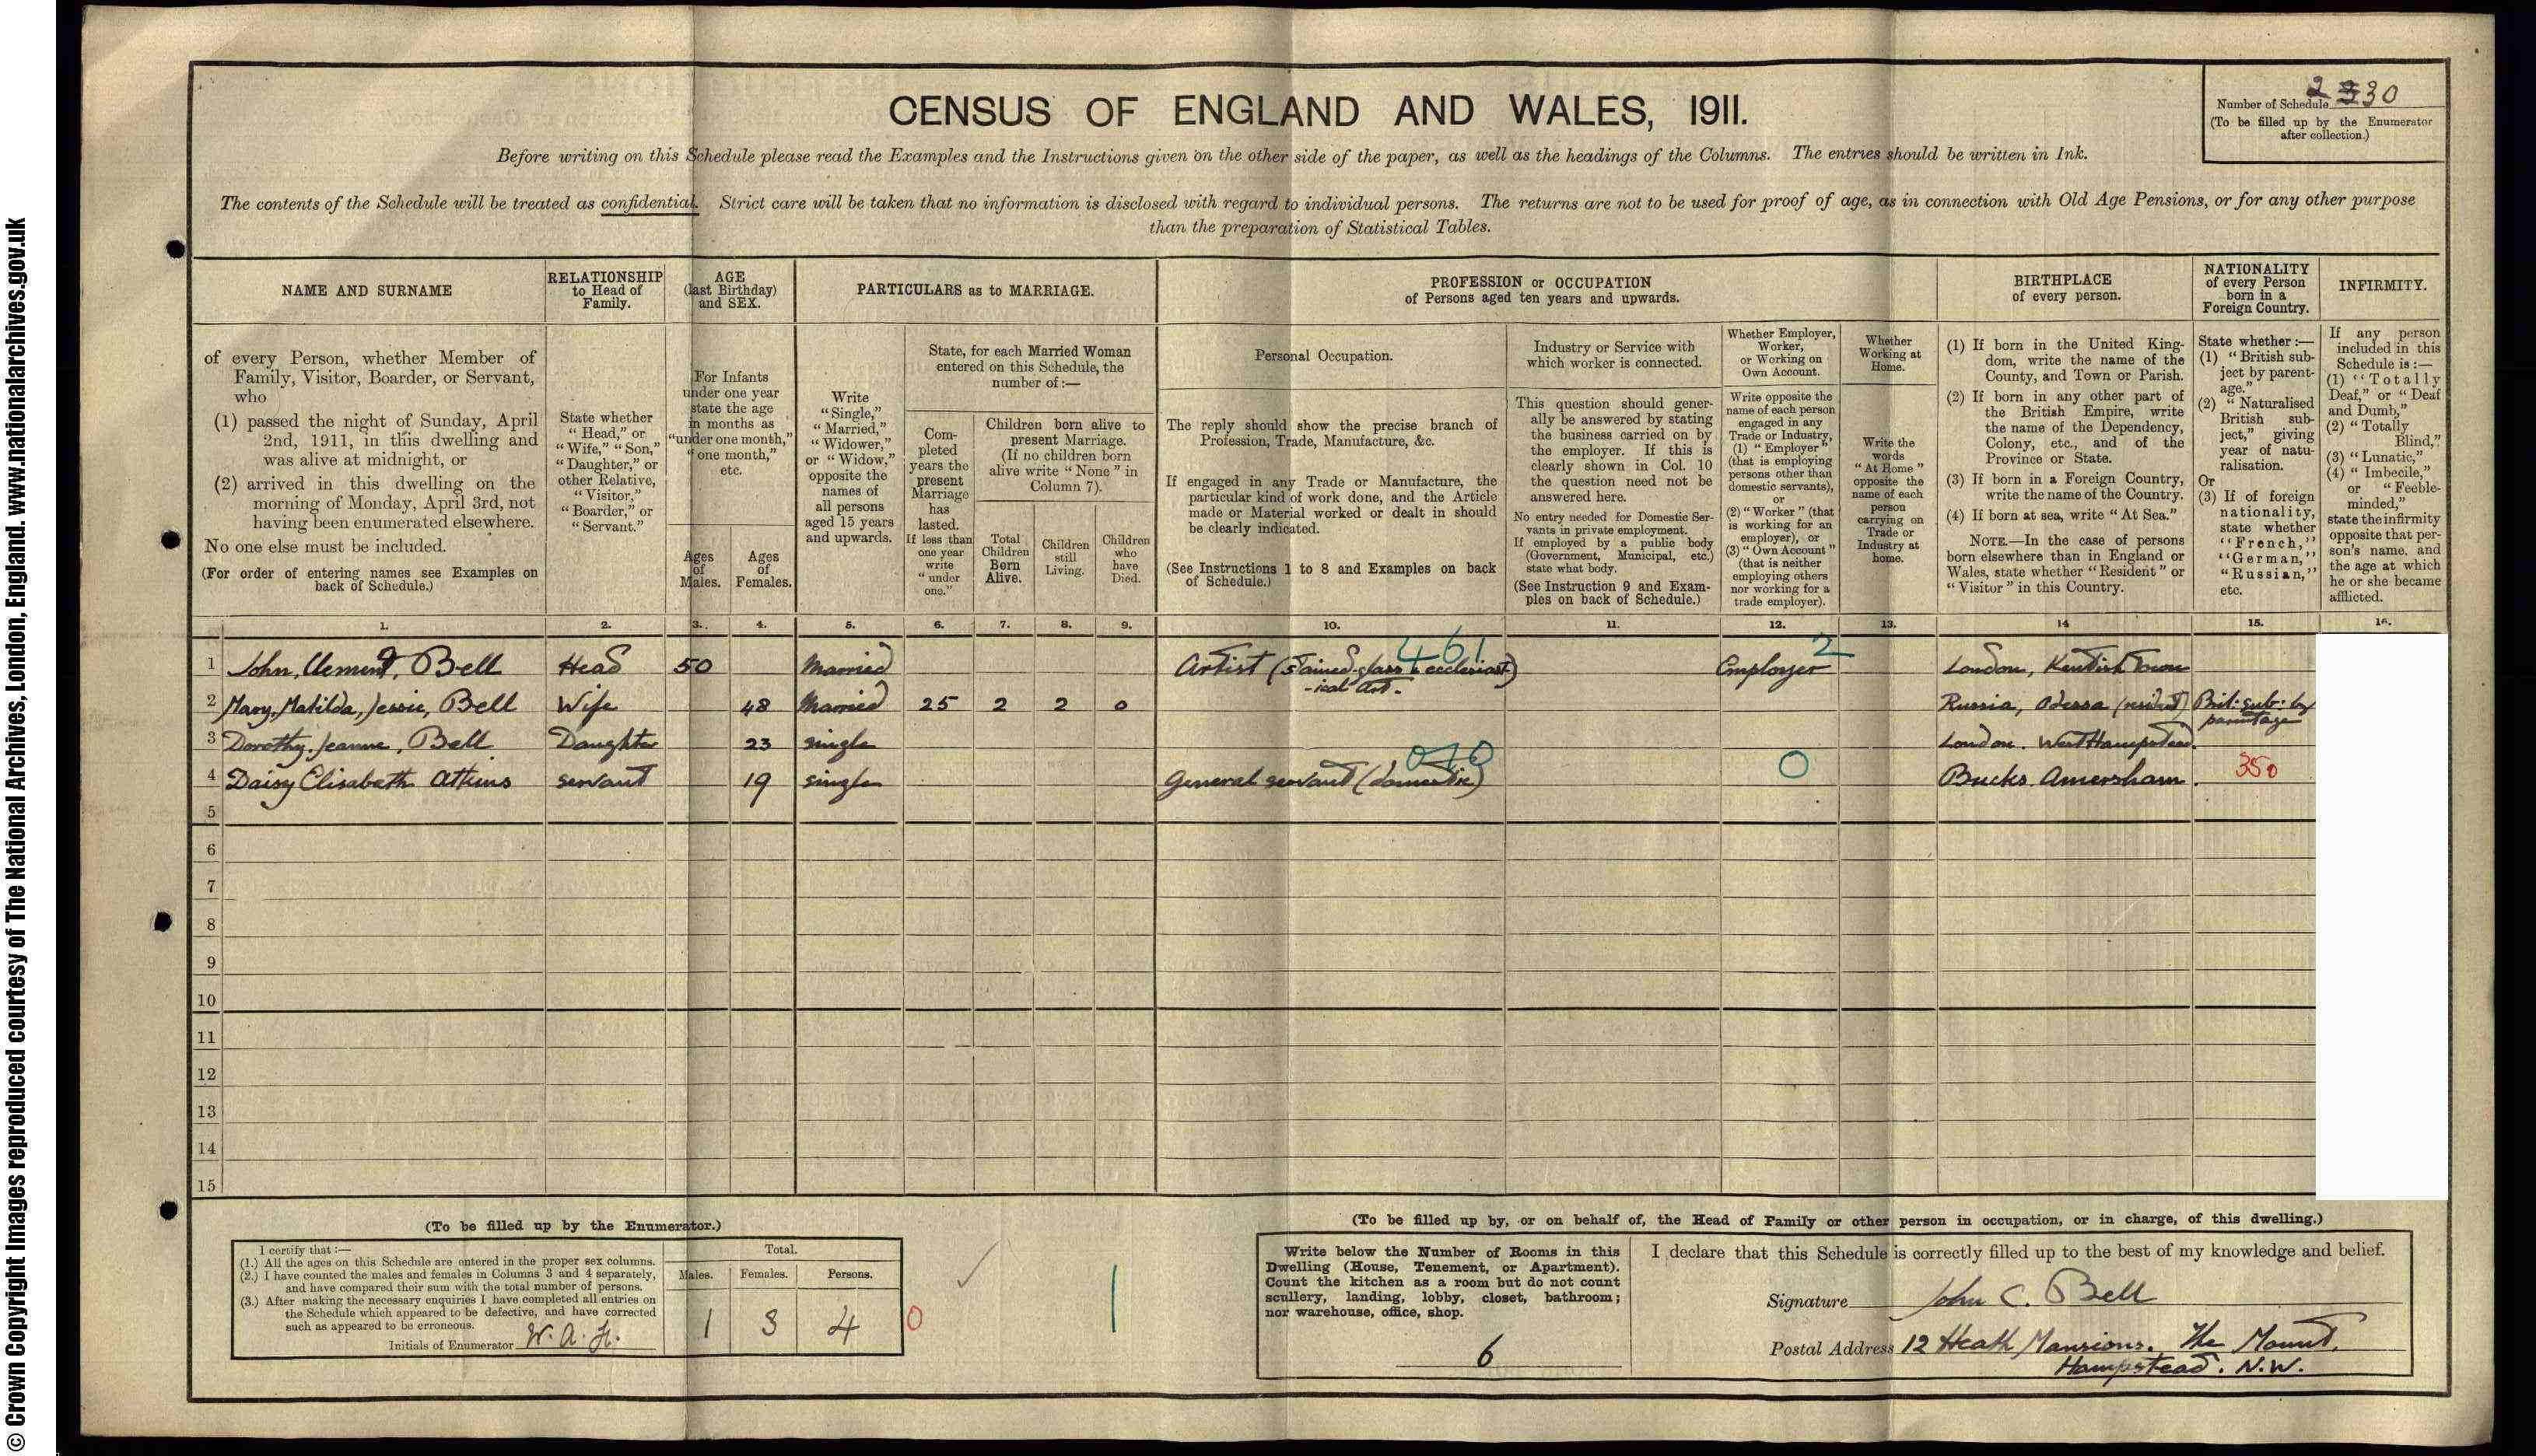 © Crown Copyright Images reproduced courtesy of The National Archives, London, England. www.nationalarchives.gov.uk
CENSUS OF ENGLAND AND WALES, 1911.
Number of Schedule 2 30
(To be filled up by the Enumerator
after collection.)
Before writing on this Schedule please read the Examples and the Instructions given on the other side of the paper, as well as the headings of the Columns. The entries should be written in Ink.
The contents of the Schedule will be treated as confidential. Strict care will be taken that no information is disclosed with regard to individual persons. The returns are not to be used for proof of age, as in connection with Old Age Pensions, or for any other purpose
than the preparation of Statistical Tables.
NAME AND SURNAME
of every Person, whether Member of
Family, Visitor, Boarder, or Servant,
who
(1) passed the night of Sunday, April
2nd, 1911, in this dwelling and
was alive at midnight, or
(2) arrived in this dwelling on the
morning of Monday, April 3rd, not
having been enumerated elsewhere.
No one else must be included.
(For order of entering names see Examples on
back of Schedule.)
RELATIONSHIP
to Head of
Family.
State whether
"Head," or
"Wife," "Son,"
"Daughter," or
other Relative,
"Visitor,"
"Boarder," or
"Servant."
AGE
(last Birthday)
and SEX.
For Infants
under one year
state the age
in months as
"under one month,"
"one month,"
etc.
Ages
of
Males.
Ages
of
Females.
PARTICULARS as to MARRIAGE.
Write
"Single,"
"Married,"
"Widower,"
or "Widow,"
opposite the
names of
all persons
aged 15 years
and upwards.
State, for each Married Woman
entered on this Schedule, the
number of:—
Com-
pleted
years the
present
Marriage
has
lasted.
If less than
one year
write
"under
one."
Children born alive to
present Marriage.
(If no children born
alive write "None" in
Column 7).
Total
Children
Born
Alive.
Children
still
Living.
Children
who
have
Died.
PROFESSION or OCCUPATION
of Persons aged ten years and upwards.
Personal Occupation.
The reply should show the precise branch of
Profession, Trade, Manufacture, &c.
If engaged in any Trade or Manufacture, the
particular kind of work done, and the Article
made or Material worked or dealt in should
be clearly indicated.
(See Instructions 1 to 8 and Examples on back
of Schedule.)
Industry or Service with
which worker is connected.
This question should gener-
ally be answered by stating
the business carried on by
the employer. If this is
clearly shown in Col. 10
the question need not be
answered here.
No entry needed for Domestic Ser-
vants in private employment.
If employed by a public body
(Government, Municipal, etc.)
state what body.
(See Instruction 9 and Exam-
ples on back of Schedule.)
Whether Employer,
Worker,
or Working on
Own Account.
Write opposite the
name of each person
engaged in any
Trade or Industry,
(1) "Employer"
(that is employing
persons other than
domestic servants),
or
(2) "Worker" (that
is working for an
employer), or
(3) "Own Account"
(that is neither
employing others
nor working for a
trade employer).
Whether
Working at
Home.
Write the
words
"At Home"
opposite the
name of each
person
carrying on
Trade or
Industry at
home.
BIRTHPLACE
of every person.
(1) If born in the United King-
dom, write the name of the
County, and Town or Parish.
(2) If born in any other part of
the British Empire, write
the name of the Dependency,
Colony, etc., and of the
Province or State.
(3) If born in a Foreign Country,
write the name of the Country.
(4) If born at sea, write "At Sea."
NOTE.—In the case of persons
born elsewhere than in England or
Wales, state whether "Resident" or
"Visitor" in this Country.
NATIONALITY
of every Person
born in a
Foreign Country.
State whether:—
(1) "British sub-
ject by parent-
age."
(2) "Naturalised
British sub-
ject," giving
year of natu-
ralisation.
Or
(3) If of foreign
nationality,
state whether
"French,"
"German,"
"Russian,"
etc.
INFIRMITY.
If any person
included in this
Schedule is:—
(1) "Totally
Deaf," or "Deaf
and Dumb,"
(2) "Totally
Blind,"
(3) "Lunatic,"
(4) "Imbecile,"
or "Feeble-
minded,"
state the infirmity
opposite that per-
son's name, and
the age at which
he or she became
afflicted.
1. 2. 3. 4. 5. 6. 7. 8. 9. 10. 11. 12. 13. 14 15. 16.
461 2
1 John, Clement, Bell Head 50 Married Artist (stained-glass & ecclesiast-) Employer London, Kentish Town
-ical Art.
2 Mary, Matilda, Jessie, Bell Wife 48 Married 25 2 2 0 Russia, Odessa (resident) Brit: sub: by
parentage
3 Dorothy, Jeanne, Bell Daughter 23 single London. West Hampstead.
0
4 Daisy Elisabeth Atkins servant 19 single General servant (domestic) Bucks. Amersham. 350
5
6
7
8
9
10
11
12
13
14
15
(To be filled up by the Enumerator.)
I certify that:—
(1.) All the ages on this Schedule are entered in the proper sex columns.
(2.) I have counted the males and females in Columns 3 and 4 separately,
and have compared their sum with the total number of persons.
(3.) After making the necessary enquiries I have completed all entries on
the Schedule which appeared to be defective, and have corrected
such as appeared to be erroneous.
Initials of Enumerator W. A. H.
Total.
Males. Females. Persons.
1 3 4 0
(To be filled up by, or on behalf of, the Head of Family or other person in occupation, or in charge, of this dwelling.)
Write below the Number of Rooms in this
Dwelling (House, Tenement, or Apartment).
Count the kitchen as a room but do not count
scullery, landing, lobby, closet, bathroom;
nor warehouse, office, shop.
6
I declare that this Schedule is correctly filled up to the best of my knowledge and belief.
Signature John C. Bell
Postal Address 12 Heath Mansions. The Mount.
Hampstead. N.W.